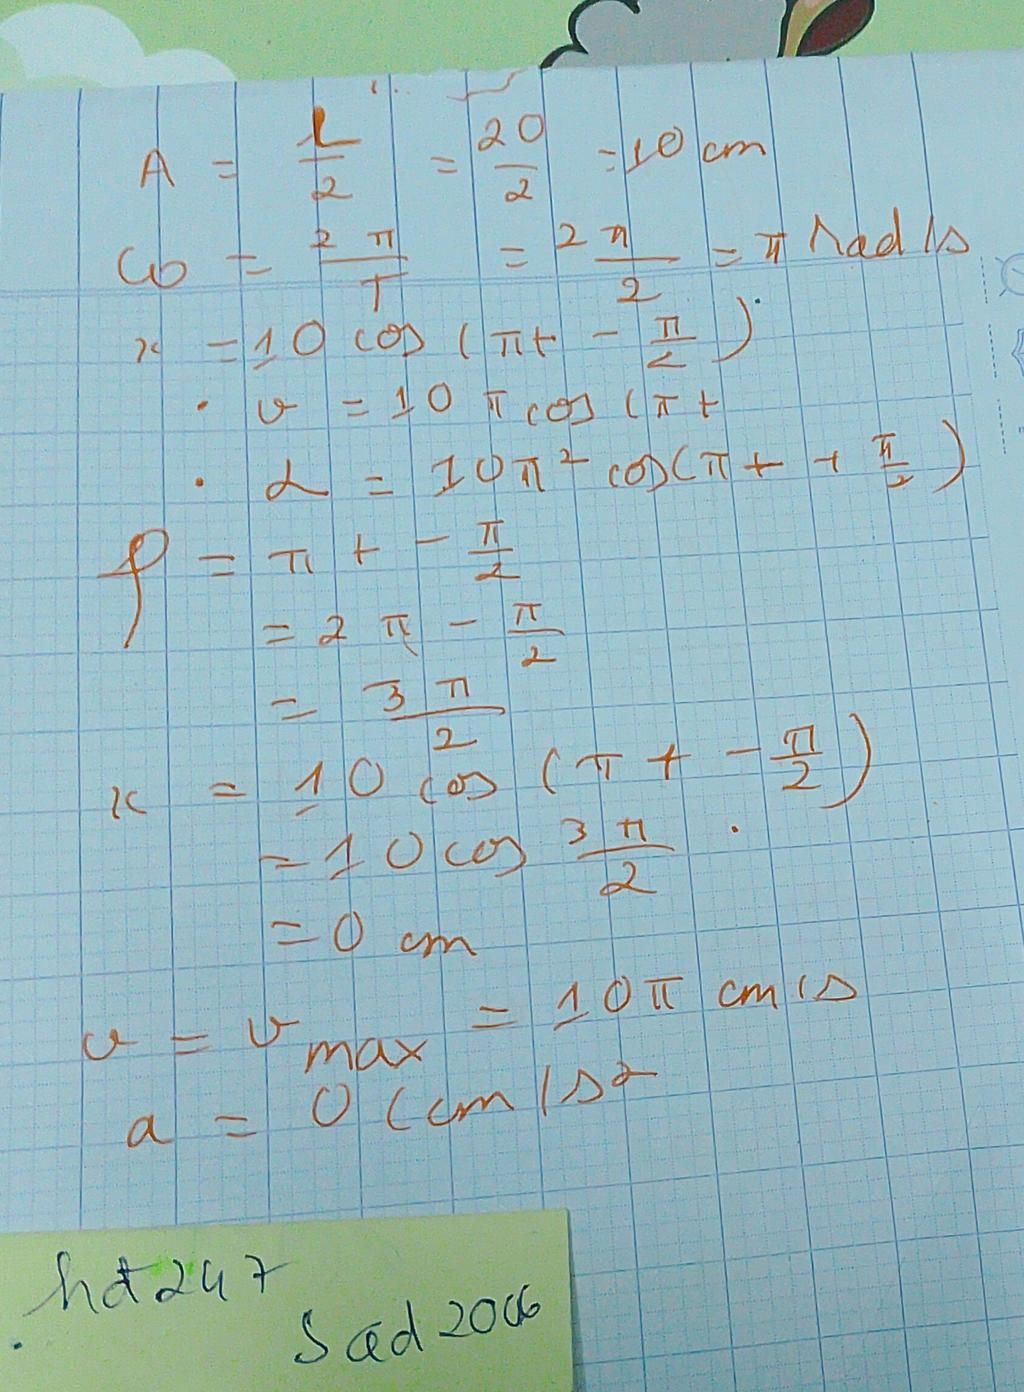 A = L/2 = 20/2 = 10 cm
ω = 2π/T = 2π/2 = π rad/s
x = 10 cos (πt - π/2)
. v = 10π cos (πt
. a = 10π² cos(πt + π/2)
φ = πt - π/2
= 2π - π/2
= 3π/2
x = 10 cos (πt - π/2)
= 10 cos 3π/2 .
= 0 cm
v = v max = 10π cm/s
a = 0 (cm/s²
hd247
Sad2006